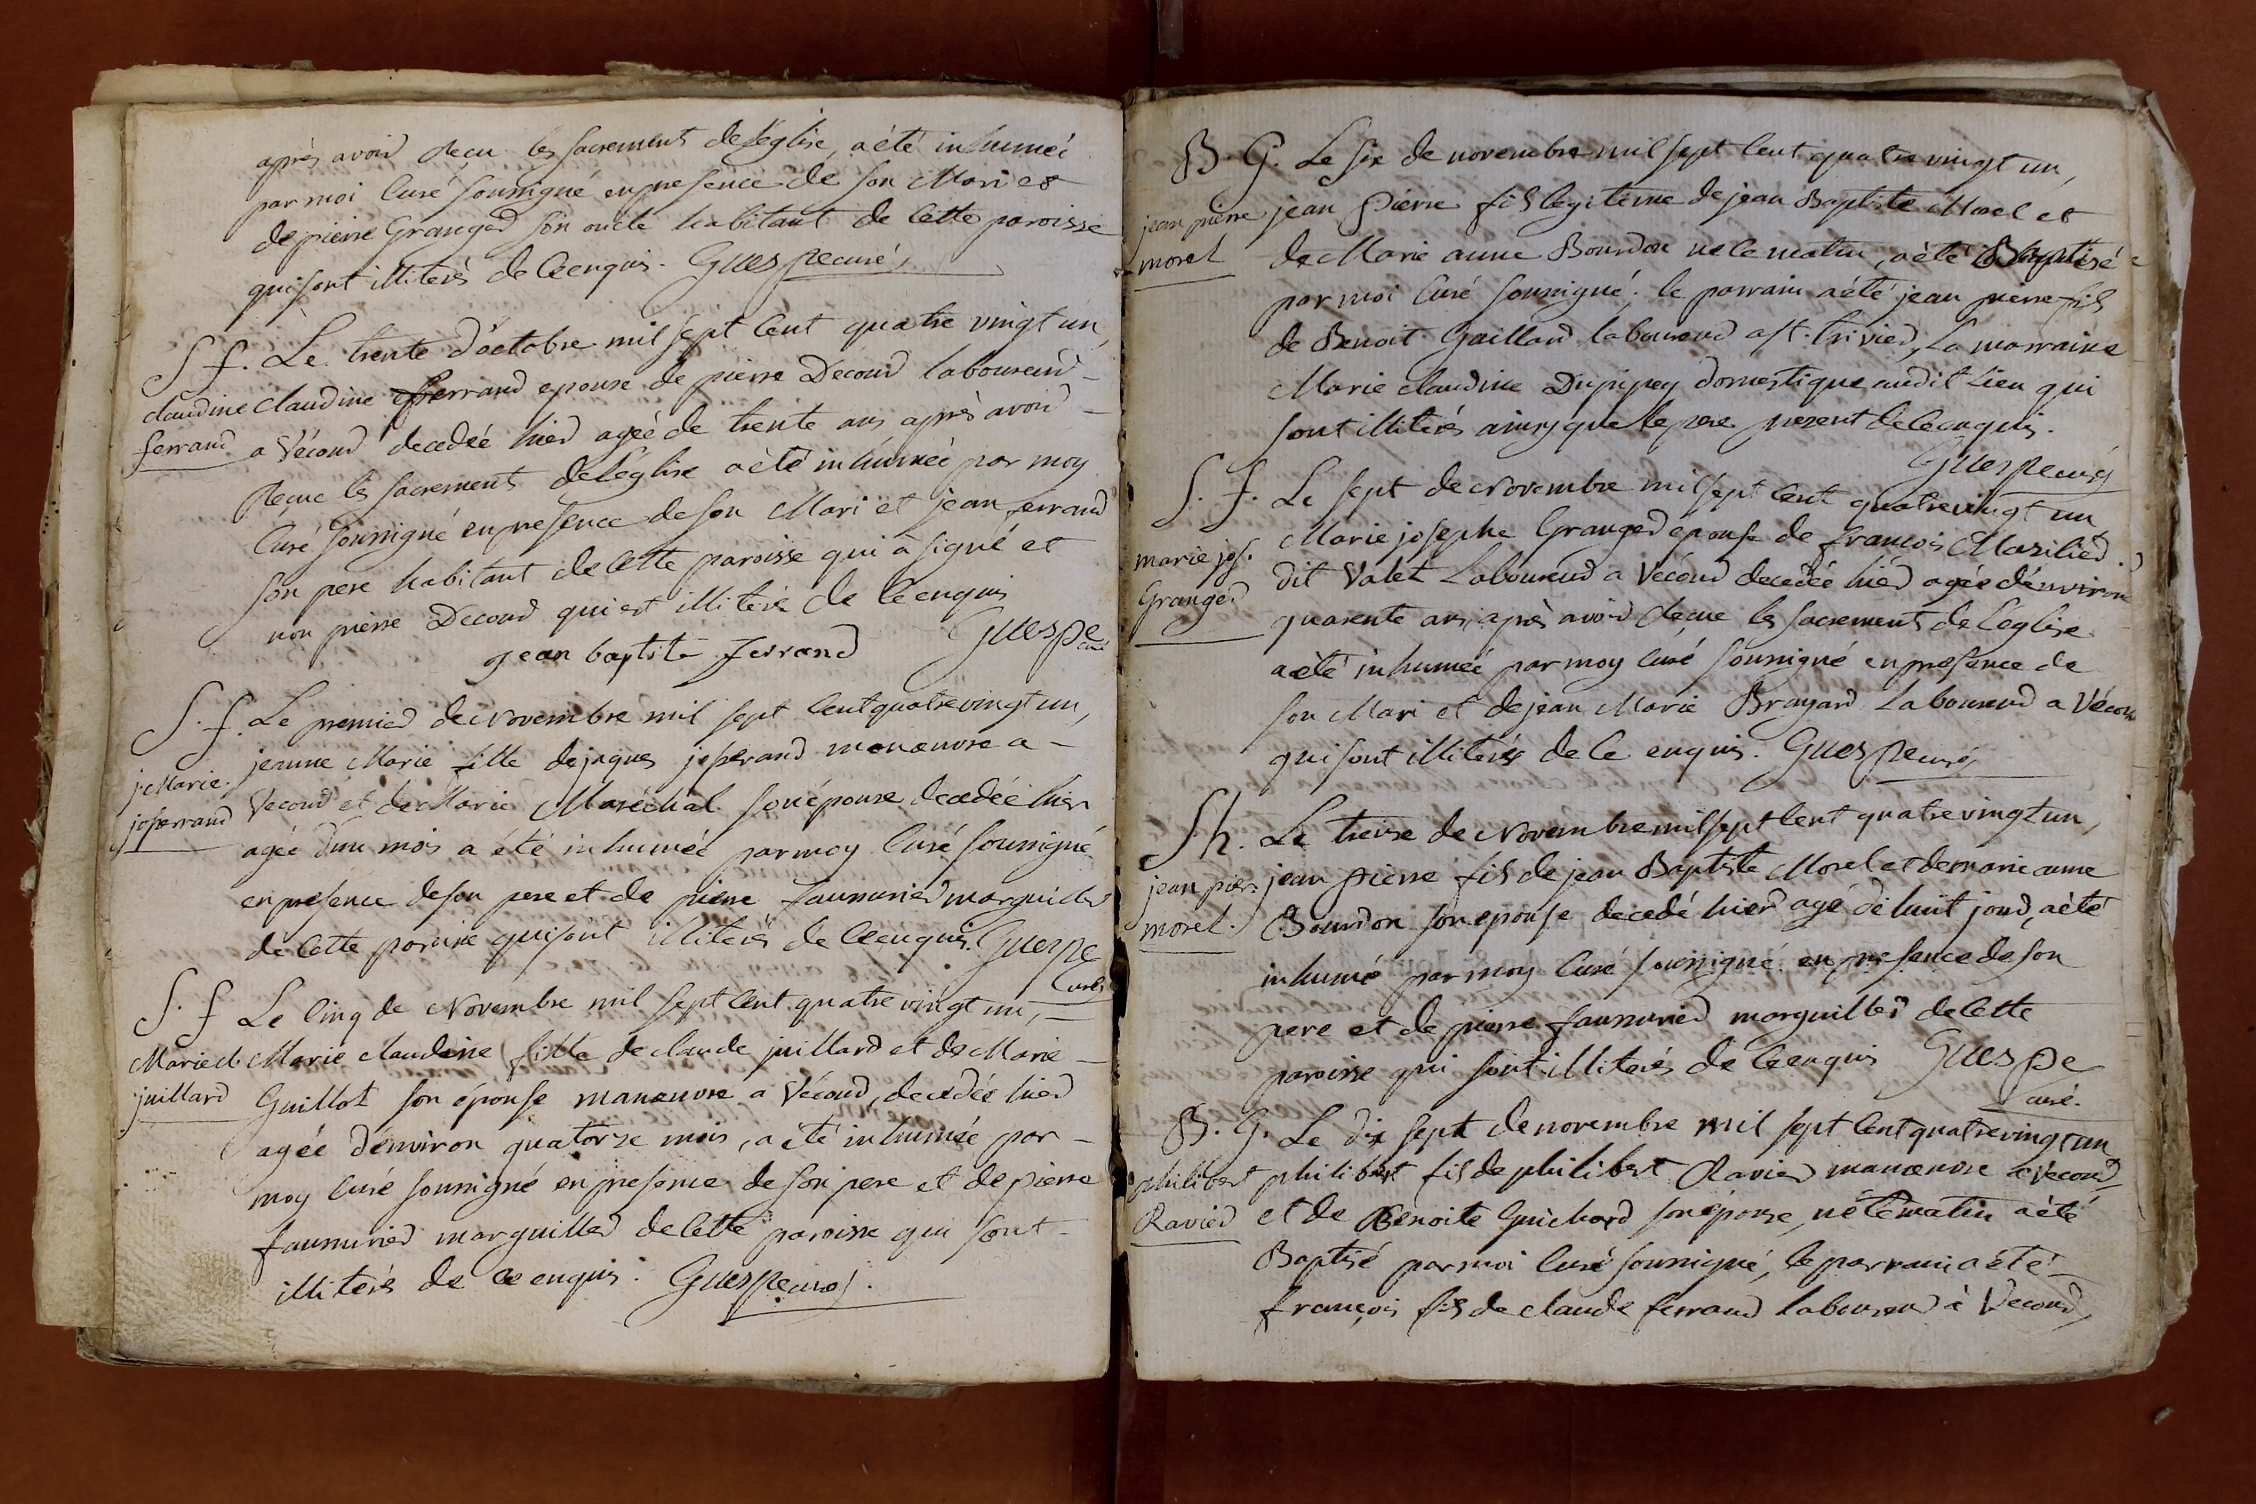 après avoir Recu les sacrements de l'eglise, a été inhumeé
par moi Curé soussigné en presence de son Mari et
de pierre Granger son oncle habitant de Cette paroisse
qui sont illiterés de Ce enquis. Guespe curé
S. f. Le trente d'octobre mil sept Cent quatre vingt un,
claudine Claudine ferrand epouse de pierre Decour laboureur
ferrand a Vécour decedeé hier ageé de trente ans après avoir
Reçue les sacrements de l'eglise a èté inhumeé par moy
Curé soussigné en presence de son Mari et jean ferrand
son pere habitant de Cette paroisse qui à signé et
non pierre Decour qui est illiteré de Ce enquis
jean baptiste ferrand Guespe curé
S. f. Le premier de Novembre mil sept Cent quatre vingt un,
j. Marie jeanne Marie fille de jaques joserand manœuvre a
joserrand Vecour et de Marie Maréchal son épouse decedée hier
ageé d'un mois a été inhumée par moy Curé soussigné
en presence de son pere et de pierre faussurier marguiller
de Cette paroisse qui sont illiterés de Ce enquis. Guespe
Curé
S. f Le Cinq de Novembre mil sept Cent quatre vingt un,
Marie cl. Marie claudine fille de claude juillard et de Marie
juillard Guillot son épouse manœuvre a Vécour, decedée hier
agée d'environ quatorze mois, a été inhumée par
moy Curé soussigné en presence de son pere et de pierre
faussurier marguiller de Cette paroisse qui sont
illiterés de Ce enquis. Guespe curé.
B. G. Le six de novembre mil sept Cent quatre vingt un,
jean pierre jean pierre fils legiteme de jean Baptiste Morel et
morel de Marie anne Bourdon né le matin, a été Baptisé
par moi Curé soussigné. le parrain a été jean pierre fils
de Benoit Gaillard laboureur a st. trivier, La marraine
Marie claudine Dupipey domestique audit Lieu qui
sont illiterés ainsy que le pere present de Ce enquis.
Guespe curé
S. f. Le sept de Novembre mil sept Cent quatre vingt un
marie jos. Marie josephe Granger épouse de francois Mazilier
Granger dit Valet Laboureur a Vécour decedée hier agée d'environ
quarente ans, après avoir Reçue les sacrements de L'eglise
a èté inhumeé par moy Curé soussigné en presence de
son Mari et de jean Marie Brayard Laboureur a Vécour
qui sont illiterés de Ce enquis. Guespe curé
S h. Le treize de Novembre mil sept Cent quatre vingt un,
jean pier. jean pierre fils de jean Baptiste Morel et de marie anne
morel. Bourdon son epouse, decedé hier agé de huit jour, a èté
inhumé par moy Curé soussigné en presence de son
pere et de pierre faussurier marguiller de Cette
paroisse qui sont illiterés de Ce enquis Guespe
curé.
B. G. Le dix sept de novembre mil sept Cent quatre vingt un
philibert philibert fils de philibert Ravier manœuvre a Vecour,
Ravier et de Benoite Guichard son épouse, né le matin a èté
Baptisé par moi Curé soussigné, le parrain a été
françois fils de claude ferrand laboureur à Vecour,